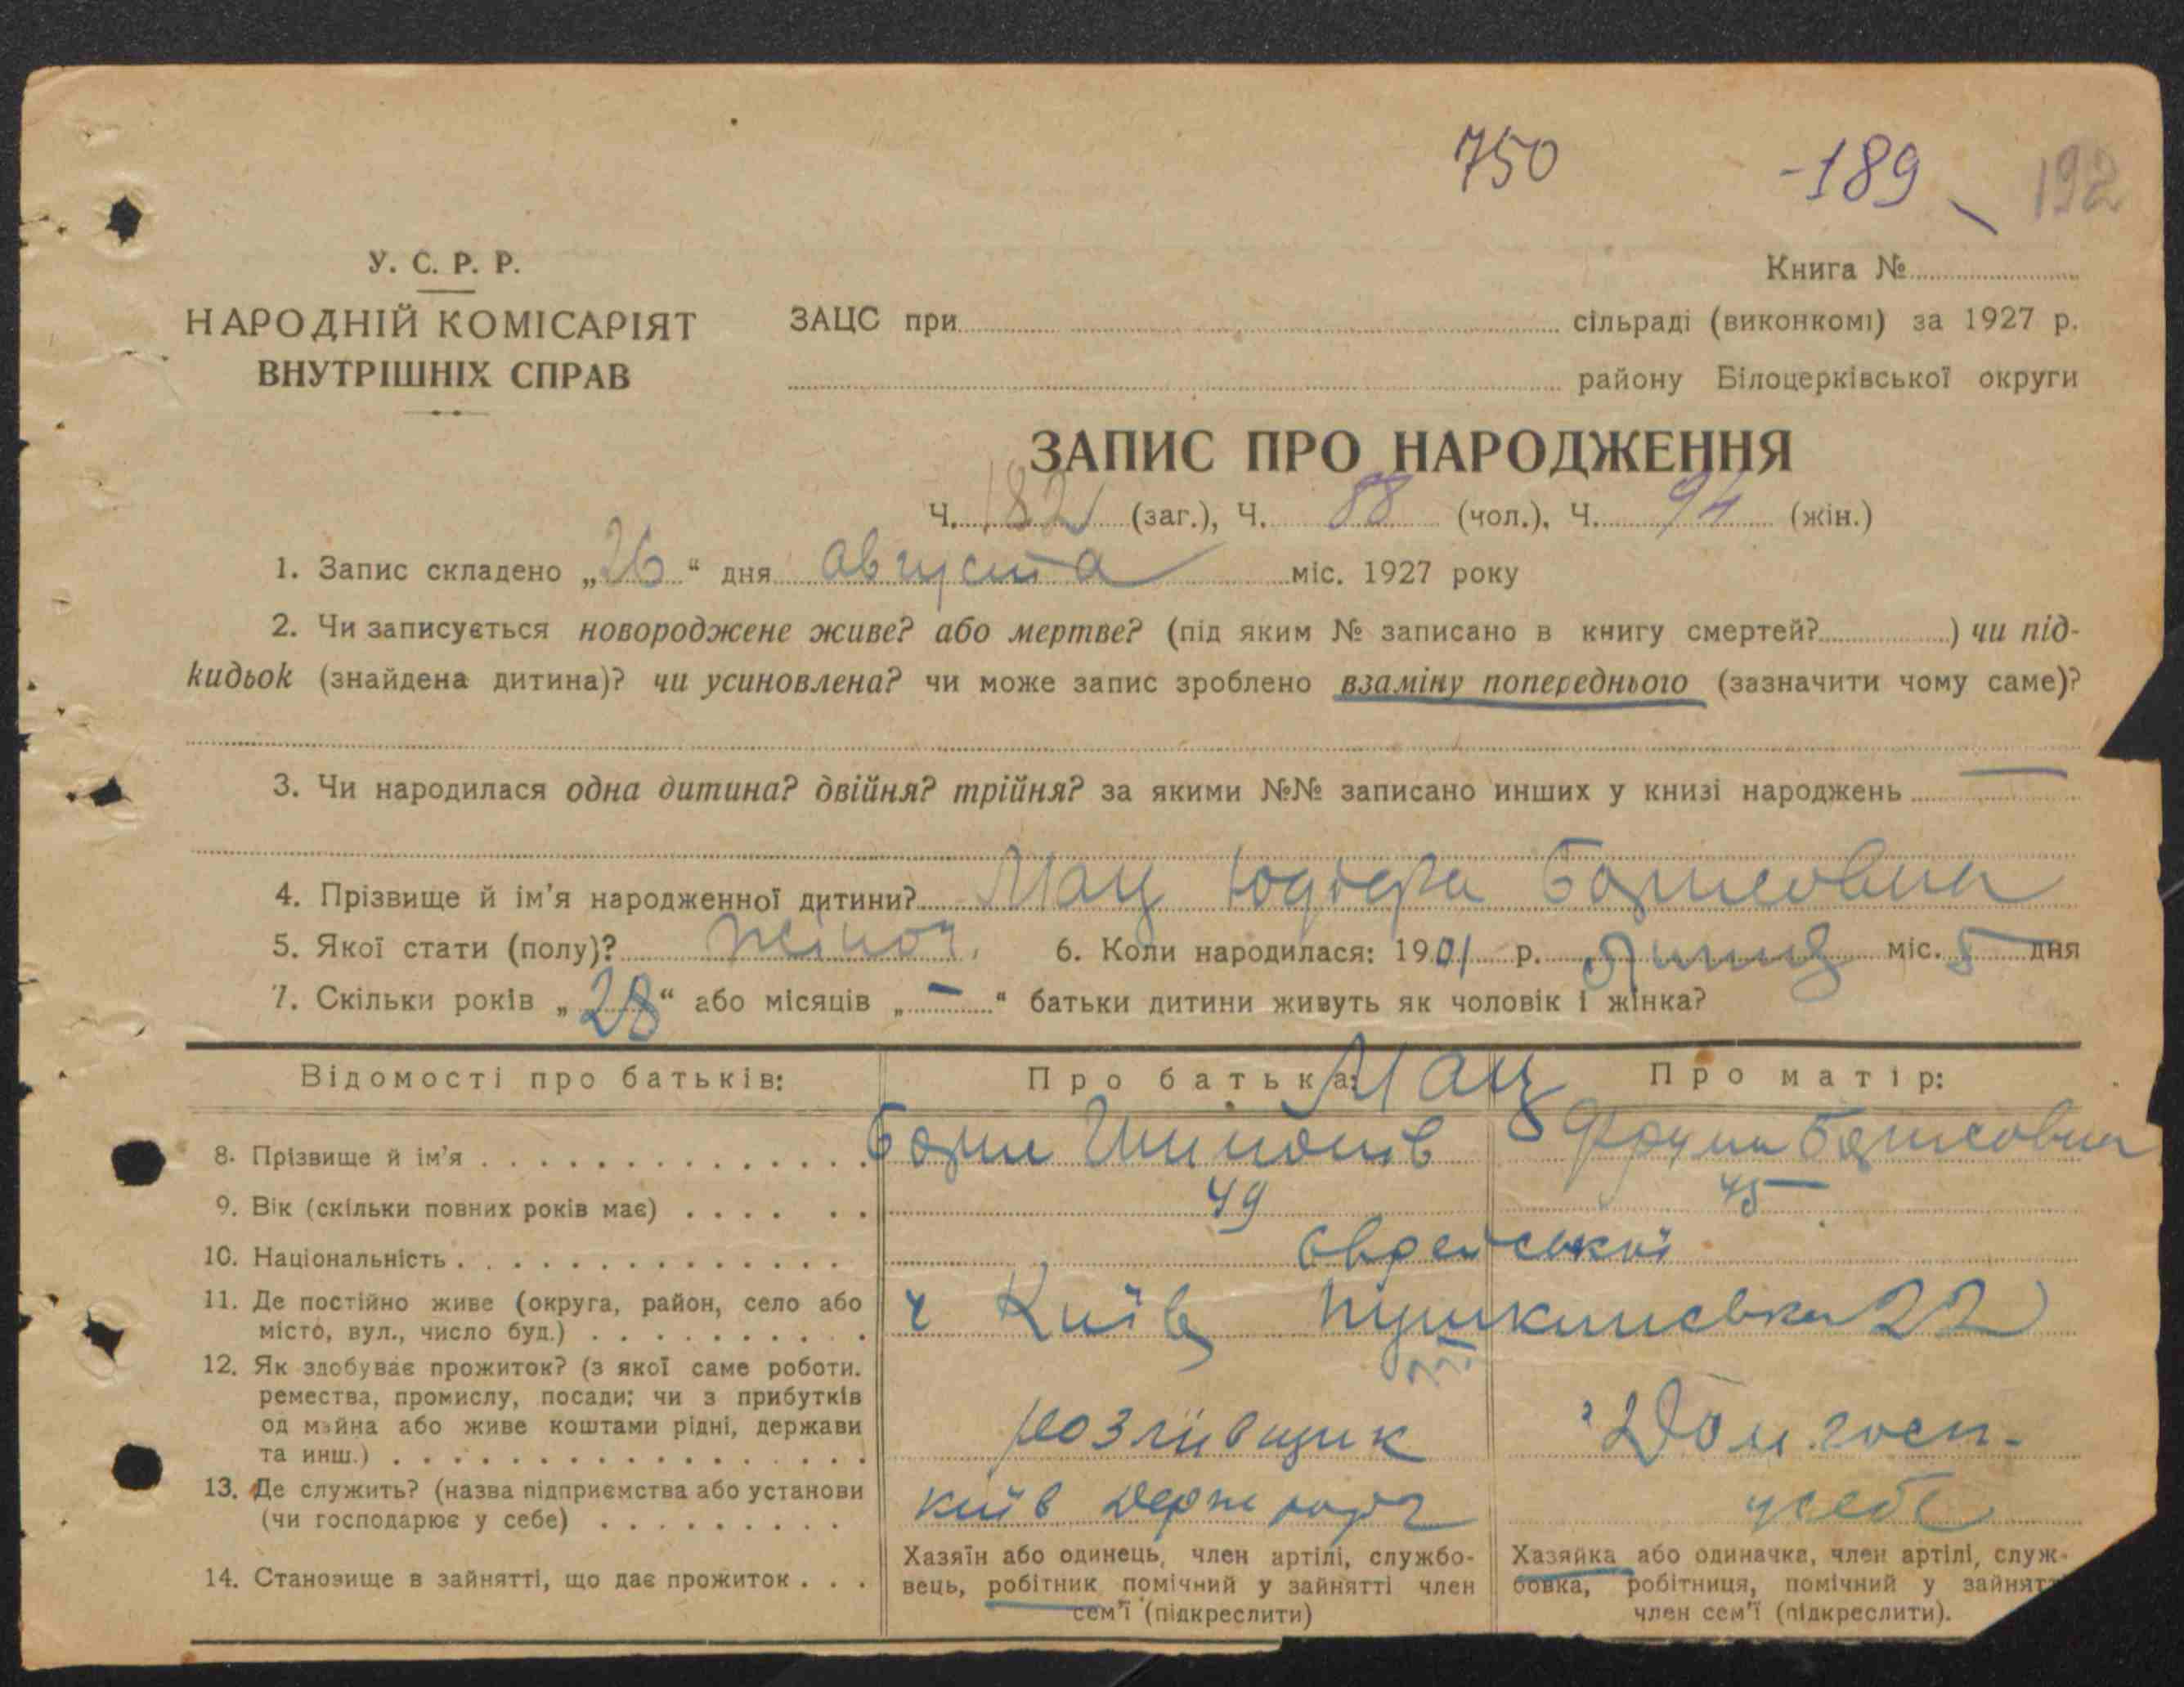 750 -189 192
У. С. Р. Р.
НАРОДНІЙ КОМІСАРІЯТ
ВНУТРІШНІХ СПРАВ
Книга №
ЗАЦС при сільраді (виконкомі) за 1927 р.
району Білоцерківської округи
ЗАПИС ПРО НАРОДЖЕННЯ
Ч. 182 (заг.), Ч. 88 (чол.), Ч. 94 (жін.)
1. Запис складено „26“ дня августа міс. 1927 року
2. Чи записується новороджене живе? або мертве? (під яким № записано в книгу смертей? ) чи під-
кидьок (знайдена дитина)? чи усиновлена? чи може запис зроблено взаміну попереднього (зазначити чому саме)?
3. Чи народилася одна дитина? двійня? трійня? за якими №№ записано инших у книзі народжень —
4. Прізвище й ім'я народженної дитини? Мац Борисовна
5. Якої стати (полу)? жіноч. 6. Коли народилася: 1901 р. міс. 5 дня
7. Скільки років „28“ або місяців „—“ батьки дитини живуть як чоловік і жінка?
Відомості про батьків: Про батька: Мац Про матір:
8. Прізвище й ім'я Борис Фрума Борисовна
9. Вік (скільки повних років має) 49 45
10. Національність єврейської
11. Де постійно живе (округа, район, село або
місто, вул., число буд.) Київ Пушкинська 22
12. Як здобуває прожиток? (з якої саме роботи.
ремества, промислу, посади; чи з прибутків
од майна або живе коштами рідні, держави
та инш.) розлівщик Дом. госп.
13. Де служить? (назва підприємства або установи
(чи господарює у себе) Київ у себе
14. Становище в зайнятті, що дає прожиток
Хазяїн або одинець, член артілі, службо-
вець, робітник помічний у зайнятті член
сем'ї (підкреслити)
Хазяйка або одиначка, член артілі, служ-
бовка, робітниця, помічний у зайнятт
член сем'ї (підкреслити).